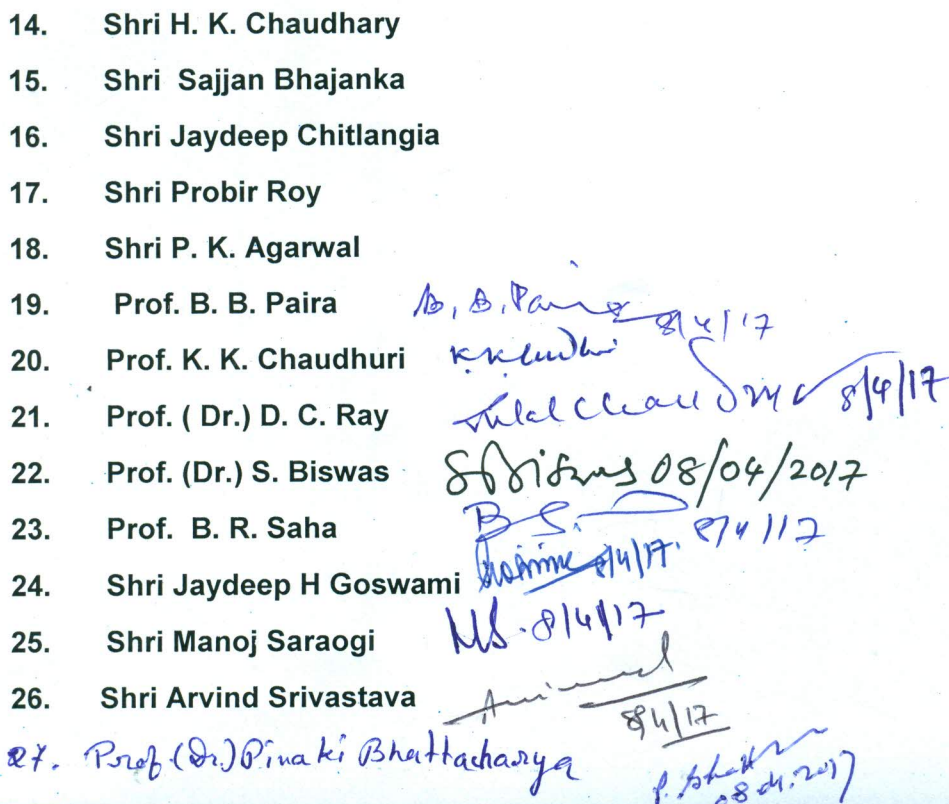 14. Shri H. K. Chaudhary
15. Shri Sajjan Bhajanka
16. Shri Jaydeep Chitlangia
17. Shri Probir Roy
18. Shri P. K. Agarwal
19. Prof. B. B. Paira B. B. Paira 8/4/17
20. Prof. K. K. Chaudhuri
21. Prof. ( Dr.) D. C. Ray 8/4/17
22. Prof. (Dr.) S. Biswas SBiswas 08/04/2017
23. Prof. B. R. Saha 8/4/17
24. Shri Jaydeep H Goswami 8/4/17.
25. Shri Manoj Saraogi MS. 8/4/17
26. Shri Arvind Srivastava 8/4/17
27. Prof (Dr.) Pinaki Bhattacharya 08.04.2017